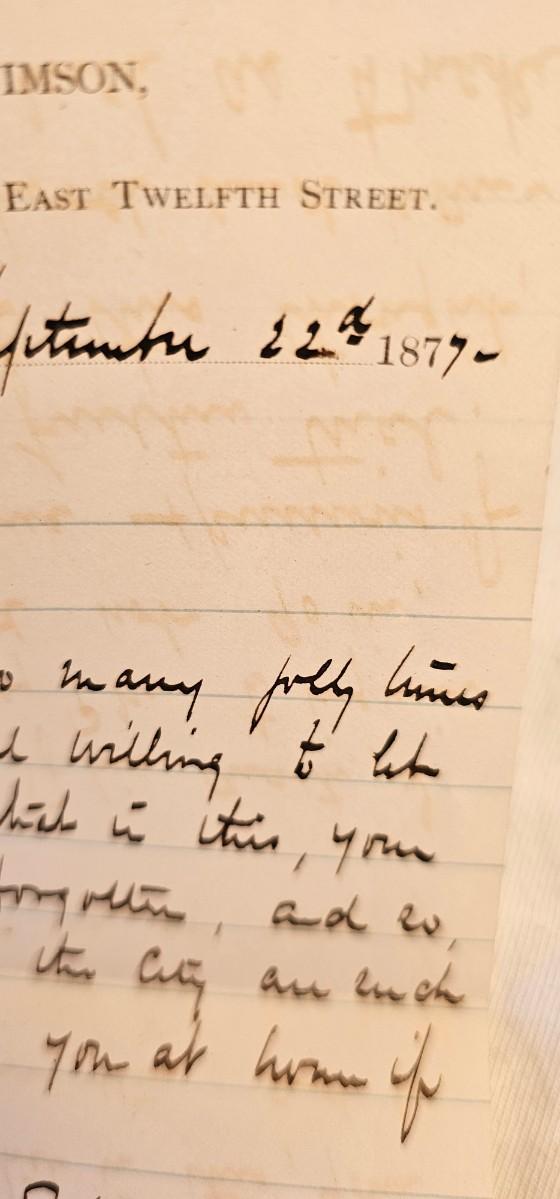 IMSON,
EAST TWELFTH STREET.
eptember 22d 1877-
o many jolly times
d willing to let
in this, your
forgotten, and so,
the City are such
you at home if